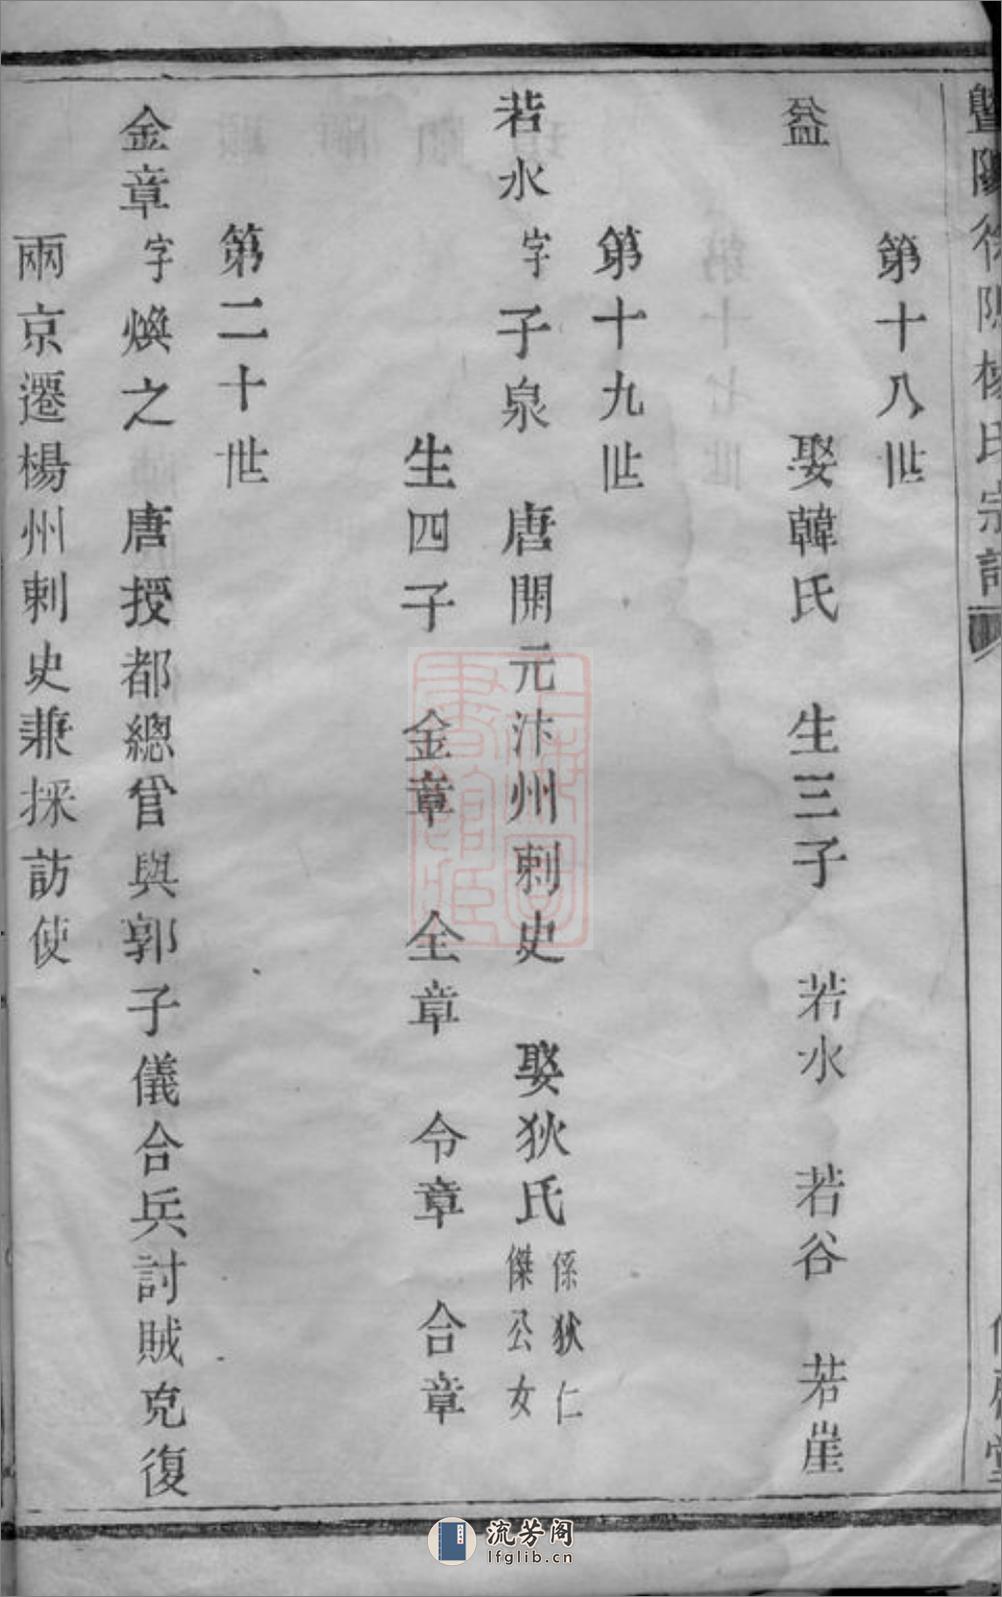 暨陽徐隝楊氏宗譜
第十八世
益 娶韓氏 生三子 若水 若谷 若崖
第十九世
若水 字子泉 唐開元汴州刺史 娶狄氏 係狄仁傑公女
生四子 金章 全章 令章 合章
第二十世
金章 字煥之 唐授都總管與郭子儀合兵討賊克復
兩京遷楊州刺史兼採訪使
上海圖書館藏
流芳阁
lfglib.cn